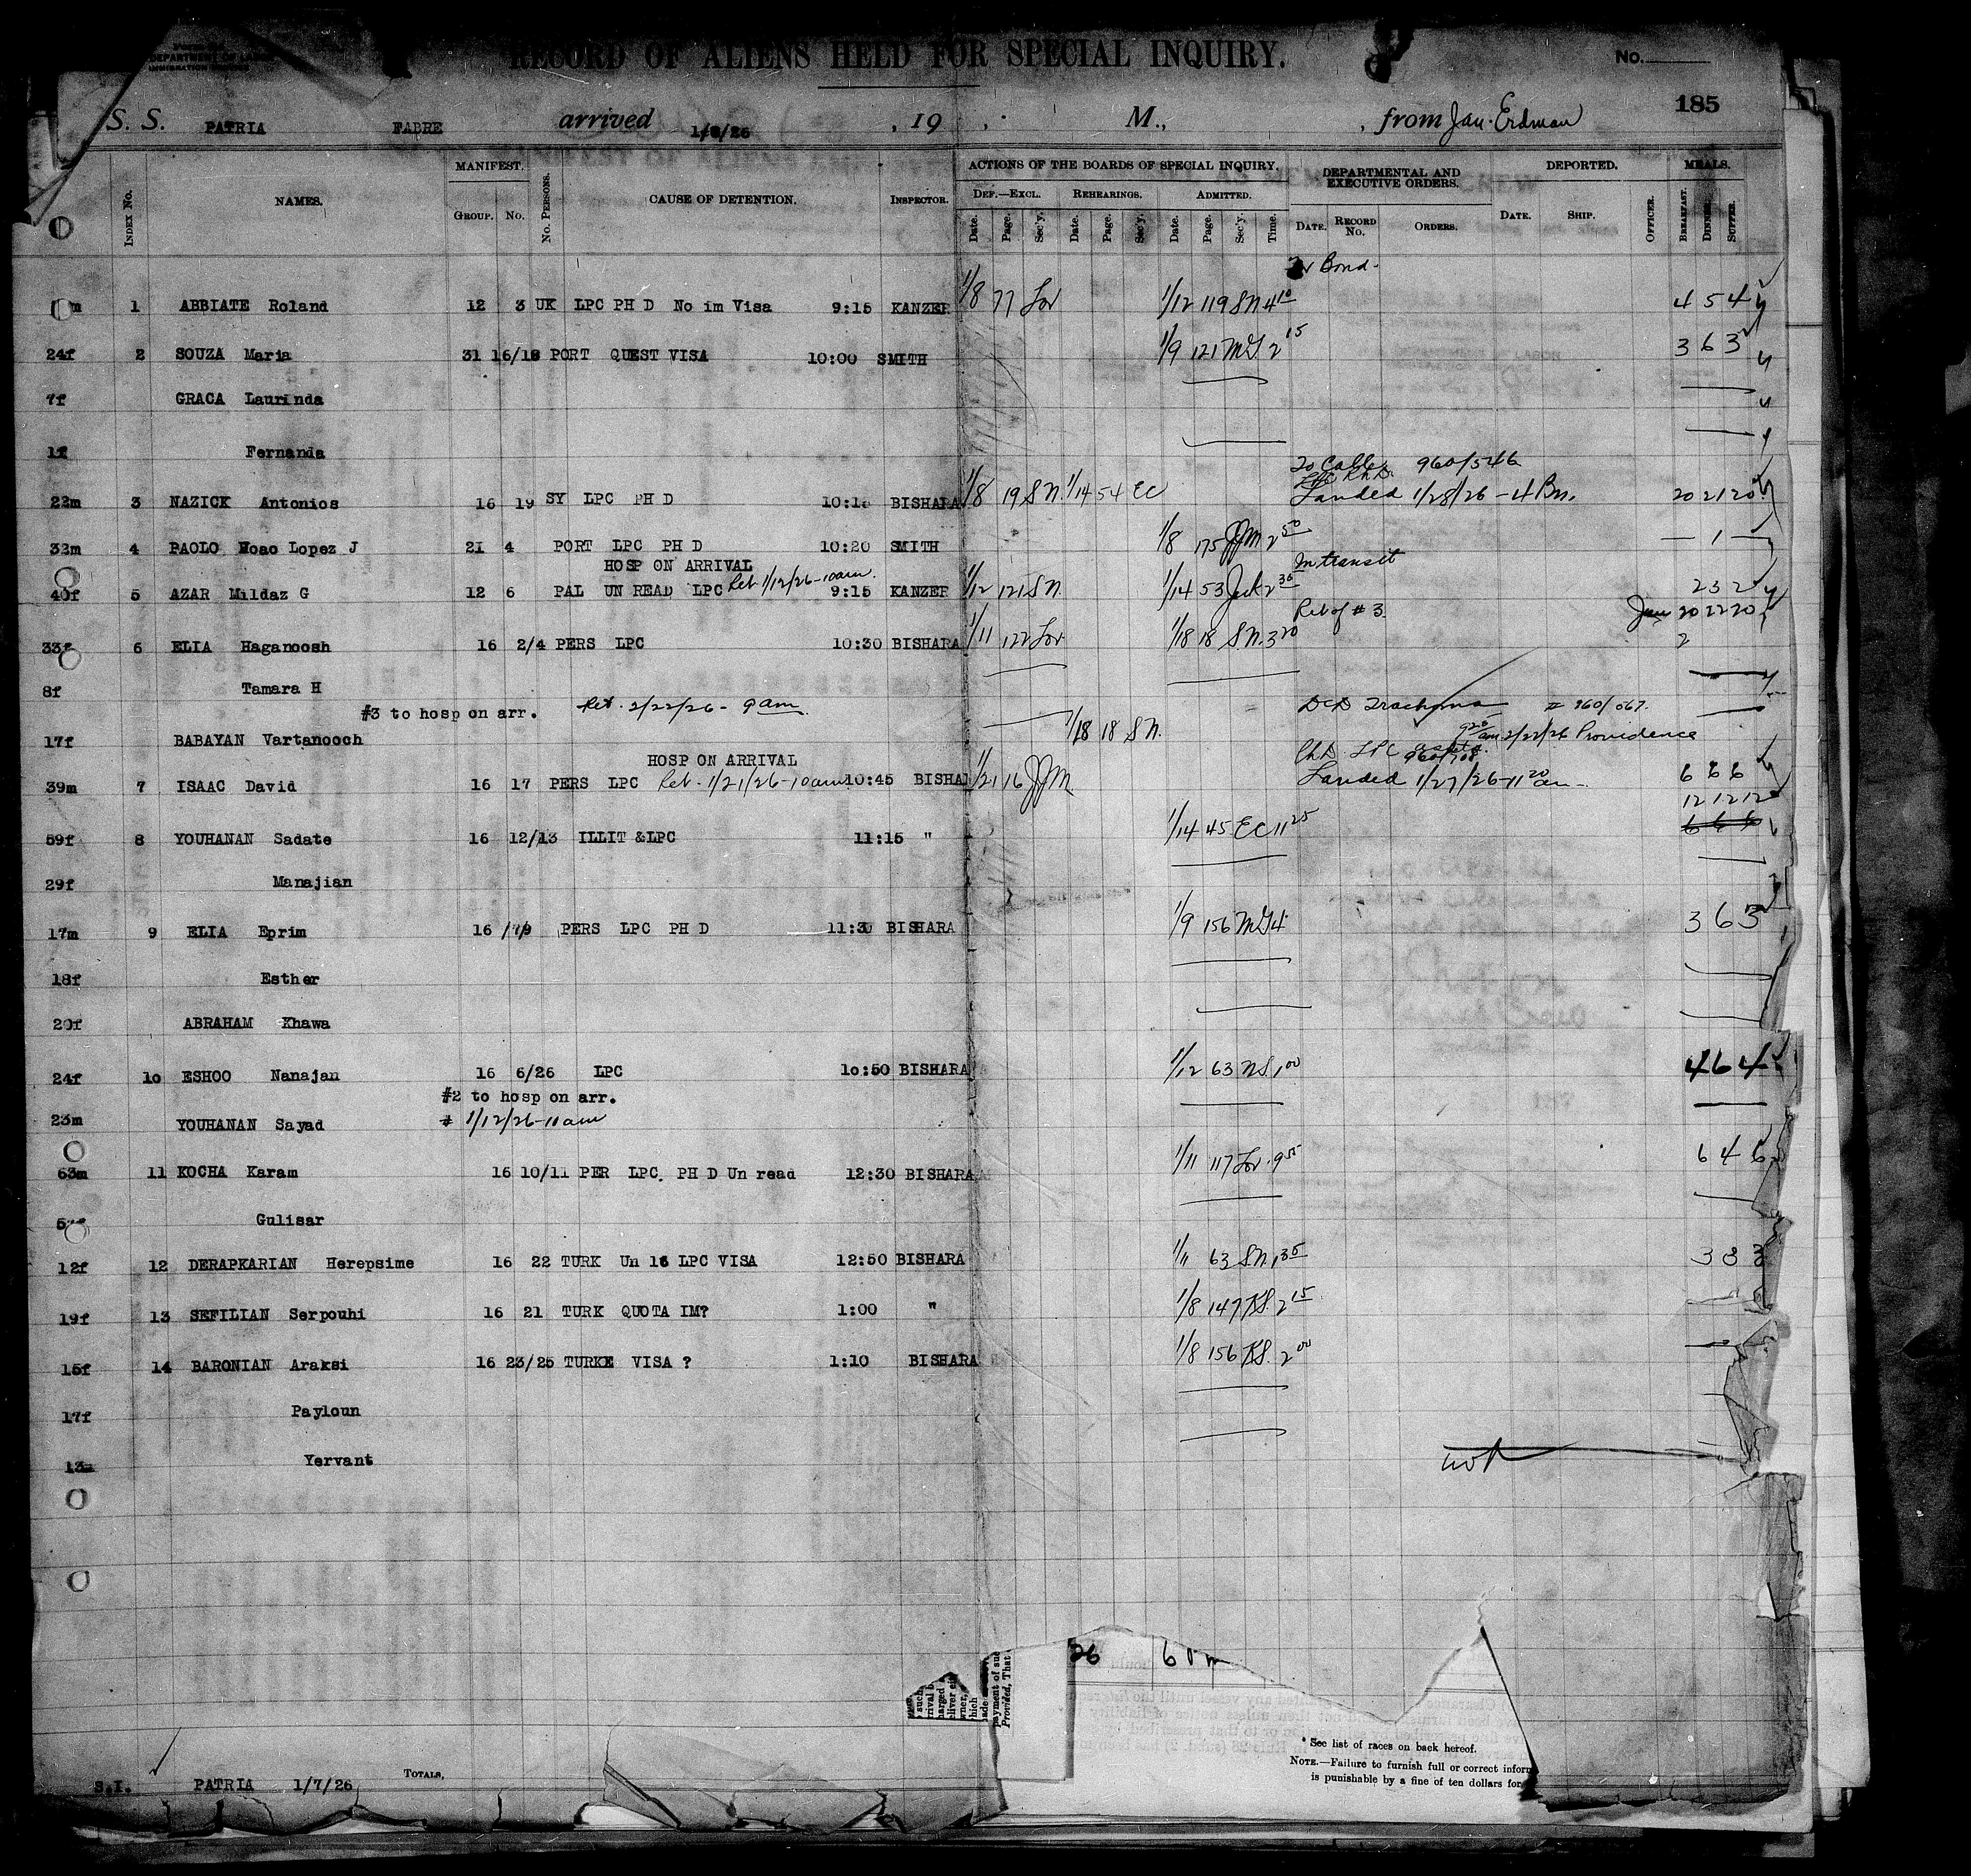 DEPARTMENT OF LABOR
IMMIGRATION SERVICE
RECORD OF ALIENS HELD FOR SPECIAL INQUIRY.
No.
185
S. S. PATRIA FABRE arrived 1/8/26, 19 , M., , from Jan. Erdman
INDEX No. NAMES. MANIFEST. GROUP. No. No. PERSONS. CAUSE OF DETENTION. INSPECTOR.
ACTIONS OF THE BOARDS OF SPECIAL INQUIRY. DEF.—EXCL. REHEARINGS. ADMITTED.
Date. Page. Sec'y. Date. Page. Sec'y. Date. Page. Sec'y. Time.
DEPARTMENTAL AND EXECUTIVE ORDERS. DATE. RECORD No. ORDERS.
DEPORTED. DATE. SHIP. OFFICER.
MEALS. BREAKFAST. DINNER. SUPPER.
Bond.
m 1 ABBIATE Roland 12 3 UK LPC PH D No im Visa 9:15 KANZER 1/8 77 Lor 1/12 119 SN 4 10 4 5 4
24f 2 SOUZA Maria 31 16/18 PORT QUEST VISA 10:00 SMITH 1/9 121 MG 2 15 3 6 3
7f GRACA Laurinda
1f Fernanda
To Cable 960/546
LPC Ph.D.
22m 3 NAZICK Antonios 16 19 SY LPC PH D 10:15 BISHARA 1/8 19 SN. 1/14 54 EC Landed 1/28/26 - 4 Pm. 20 21 20
32m 4 PAOLO Noao Lopez J 21 4 PORT LPC PH D 10:20 SMITH 1/8 175 JJM 2 50 — 1 —
HOSP ON ARRIVAL In transit
40f 5 AZAR Mildaz G 12 6 PAL UN READ LPC Ret 1/12/26-10am. 9:15 KANZER 1/12 121 SN. 1/14 53 2 30 2 3 2
Ret of #3. Jan 20 22 20
33f 6 ELIA Haganoosh 16 2/4 PERS LPC 10:30 BISHARA 1/11 122 Lor 1/18 18 S.N. 3 20 2
8f Tamara H
#3 to hosp on arr. Ret. 2/22/26 - 9am. DCD Trachoma # 960/067.
17f BABAYAN Vartanooch 1/18 18 SN. 9 20 am 2/22/26 Providence
HOSP ON ARRIVAL Ph.D. LPC 960/708
39m 7 ISAAC David 16 17 PERS LPC Ret. 1/21/26-10am 10:45 BISHA 1/21 16 JJM Landed 1/27/26-11 20 am. 6 6 6
12 12 12
59f 8 YOUHANAN Sadate 16 12/13 ILLIT &LPC 11:15 " 1/14 45 EC 11 25 6 6 6
29f Manajian
17m 9 ELIA Eprim 16 7/9 PERS LPC PH D 11:30 BISHARA 1/9 156 MG 4 3 6 3
18f Esther
20f ABRAHAM Khawa
24f 10 ESHOO Nanajan 16 6/26 LPC 10:50 BISHARA 1/12 63 NS 1 00 4 6 4
#2 to hosp on arr.
23m YOUHANAN Sayad # 1/12/26-11am
63m 11 KOCHA Karam 16 10/11 PER LPC. PH D Un read 12:30 BISHARA 1/11 117 Lor. 9 55 6 4 6
Gulisar
12f 12 DERAPKARIAN Herepsime 16 22 TURK Un 16 LPC VISA 12:50 BISHARA 1/11 63 SN. 1 35 3 3 3
19f 13 SEFILIAN Serpouhi 16 21 TURK QUOTA IM? 1:00 " 1/8 147 KS. 2 15
15f 14 BARONIAN Araksi 16 23/25 TURKE VISA ? 1:10 BISHARA 1/8 156 KS. 2 00
17f Payloun
13m Yervant
26 6 0 m
payment of suc
Provided, That
* See list of races on back hereof.
NOTE.—Failure to furnish full or correct inform
is punishable by a fine of ten dollars for
TOTALS.
S.I. PATRIA 1/7/26